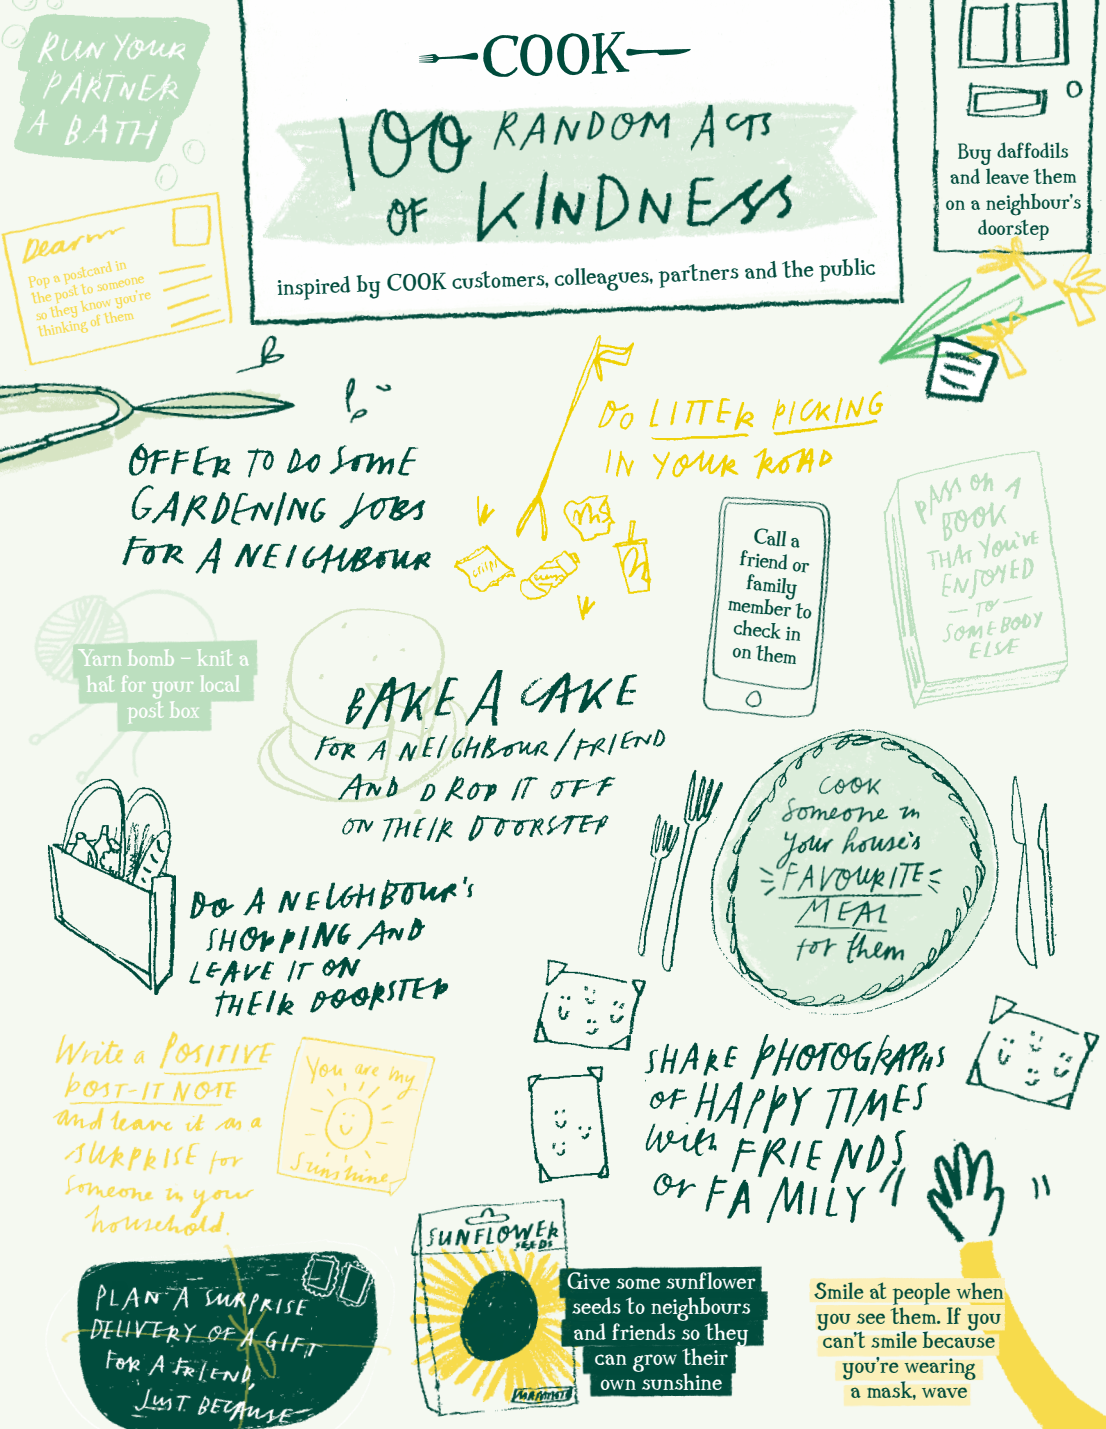 RUN YOUR
PARTNER
A BATH
COOK
100 RANDOM ACTS
OF KINDNESS
inspired by COOK customers, colleagues, partners and the public
Buy daffodils
and leave them
on a neighbour's
doorstep
Dear
Pop a postcard in
the post to someone
so they know you're
thinking of them
OFFER TO DO SOME
GARDENING JOBS
FOR A NEIGHBOUR
DO LITTER PICKING
IN YOUR ROAD
crisps
Call a
friend or
family
member to
check in
on them
PASS ON A
BOOK
THAT YOU'VE
ENJOYED
— TO —
SOMEBODY
ELSE
Yarn bomb – knit a
hat for your local
post box
BAKE A CAKE
FOR A NEIGHBOUR/FRIEND
AND DROP IT OFF
ON THEIR DOORSTEP
COOK
someone in
your house's
FAVOURITE
MEAL
for them
DO A NEIGHBOUR'S
SHOPPING AND
LEAVE IT ON
THEIR DOORSTEP
Write a POSITIVE
POST-IT NOTE
and leave it as a
SURPRISE for
someone in your
household.
You are my
Sunshine
SHARE PHOTOGRAPHS
OF HAPPY TIMES
with FRIENDS
or FAMILY
PLAN A SURPRISE
DELIVERY OF A GIFT
FOR A FRIEND,
JUST BECAUSE
SUNFLOWER
SEEDS
Give some sunflower
seeds to neighbours
and friends so they
can grow their
own sunshine
Smile at people when
you see them. If you
can't smile because
you're wearing
a mask, wave